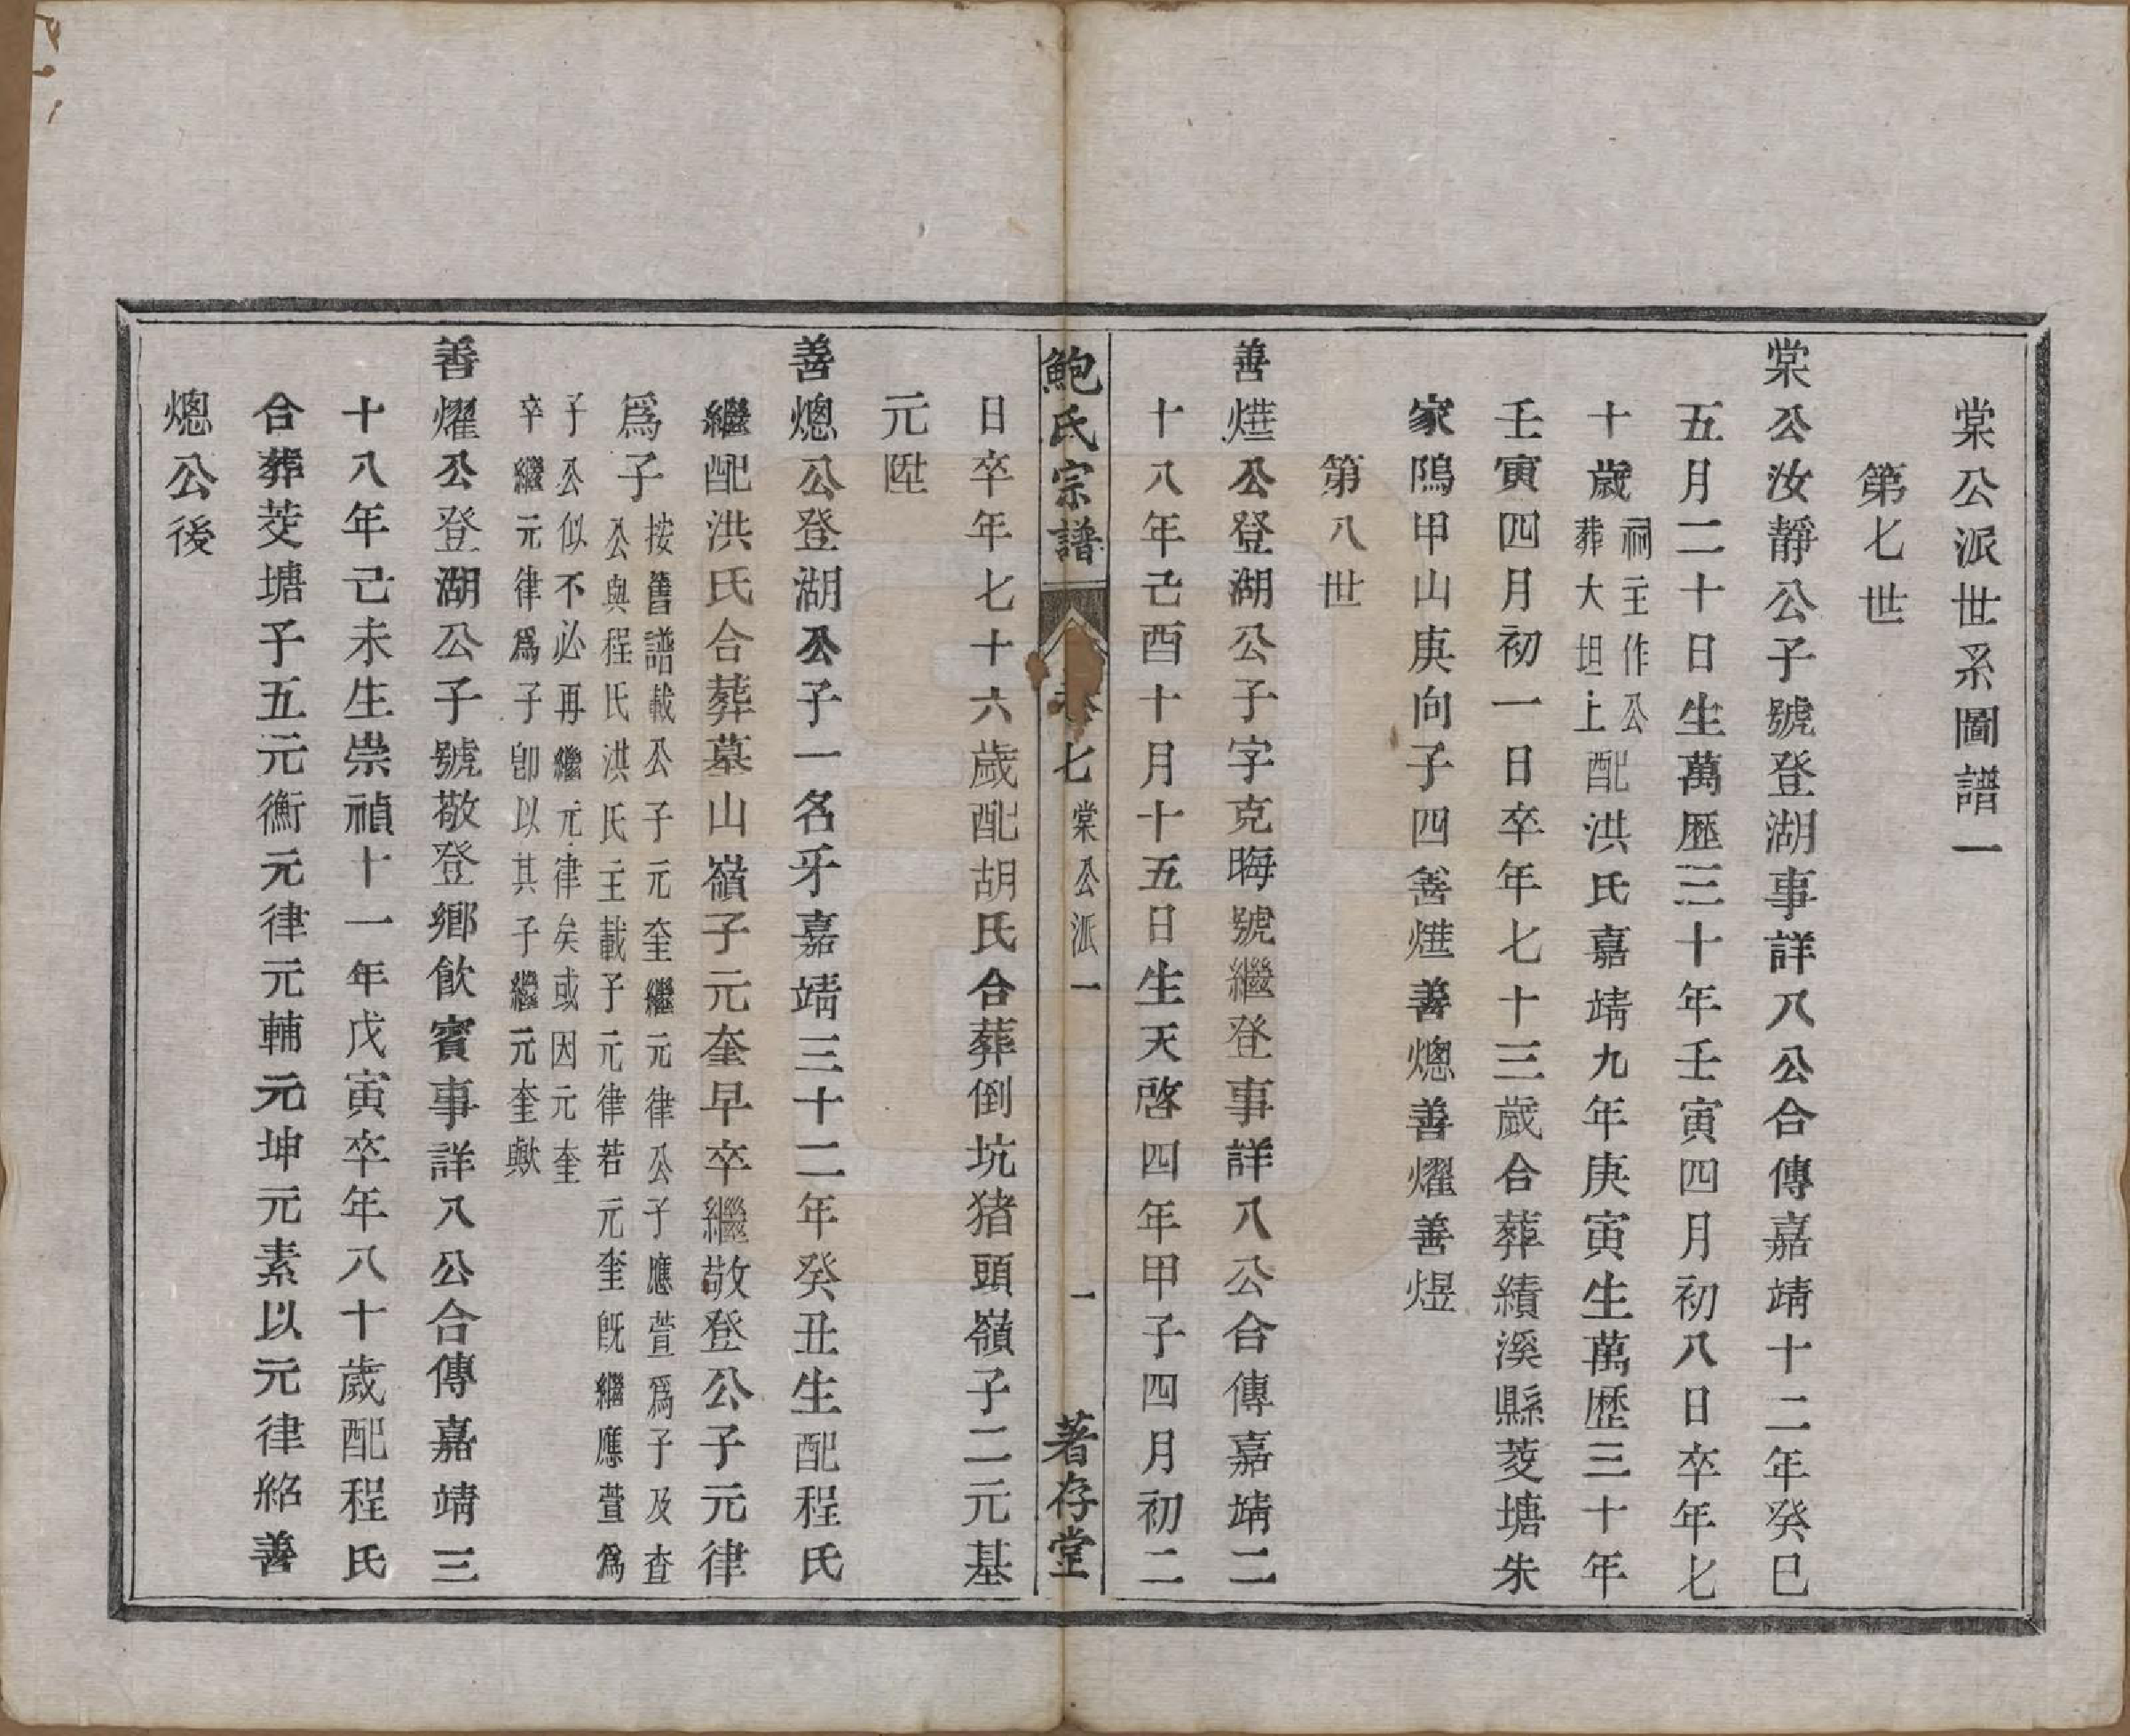 棠公派世系圖譜一
第七世
棠公汝靜公子號登湖事詳八公合傳嘉靖十二年癸巳
五月二十日生萬歷三十年壬寅四月初八日卒年七
十歲祠主作公葬大坦上配洪氏嘉靖九年庚寅生萬歷三十年
壬寅四月初一日卒年七十三歲合葬績溪縣茭塘朱
家隝甲山庚向子四善㷸善熜善燿善煜
第八世
善㷸公登湖公子字克晦號繼登事詳八公合傳嘉靖二
十八年己酉十月十五日生天啓四年甲子四月初二
鮑氏宗譜 卷七 棠公派一 一 著存堂
日卒年七十六歲配胡氏合葬倒坑猪頭嶺子二元基
元陞
善熜公登湖公子一名牙嘉靖三十二年癸丑生配程氏
繼配洪氏合葬墓山嶺子元奎早卒繼敬登公子元律
爲子按舊譜載公子元奎繼元律公子應萱爲子及查
公與程氏洪氏主載子元律若元奎既繼應萱爲
子公似不必再繼元律矣或因元奎
卒繼元律爲子卽以其子繼元奎歟
善燿公登湖公子號敬登鄉飲賓事詳八公合傳嘉靖三
十八年己未生崇禎十一年戊寅卒年八十歲配程氏
合葬茭塘子五元衡元律元輔元坤元素以元律紹善
熜公後